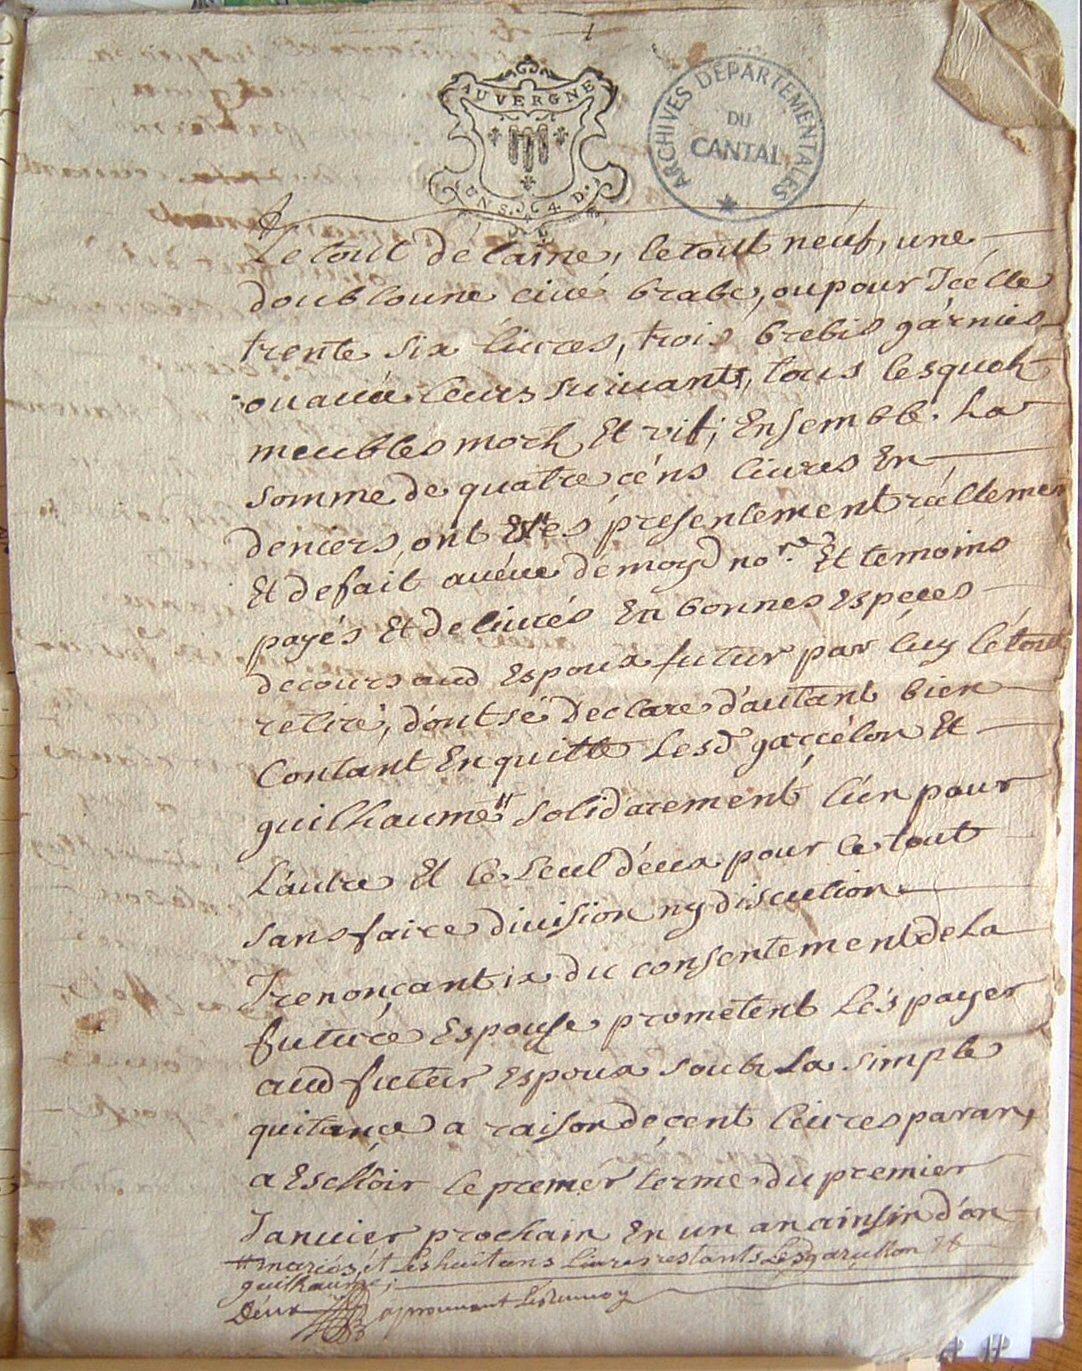 AUVERGNE
GNS. 4. D.
ARCHIVES DEPARTEMENTALES
DU
CANTAL
Le tout de laine, le tout neuf, une
doubloune ciré brabe, ou pour Jcelle
trente six livres, trois brebis garnies
ou avec leurs suivants, tous lesquels
meubles morts Et vif; Ensemble La
somme de quatre cens livres En
deniers, ont Estes presentement réellemen
Et de fait au veue de moyd nore. Et temoins
payés Et delivrés En bonnes Espeçes
de cours aud Espoux futur par luy le tout
retiré, dont se Declare d'autant bien
Contant En quitte Lesd garçélon Et
guilhaume # solidarement lún pour
Láutre Et le seul déux pour le tout
sans faire division ny discution
renonçant du consentement de La
future Espouse prometent Lés payer
aud futeur Espoux soubz La simple
quitançe a raison de çent livres par an,
a Eschoir le premér terme du premier
Janvier prochain En un an ainsin d'on
# mariés, et Les huit cens Livres restants Lesd garçellon Et
guilhaume;
Deux aprouvant